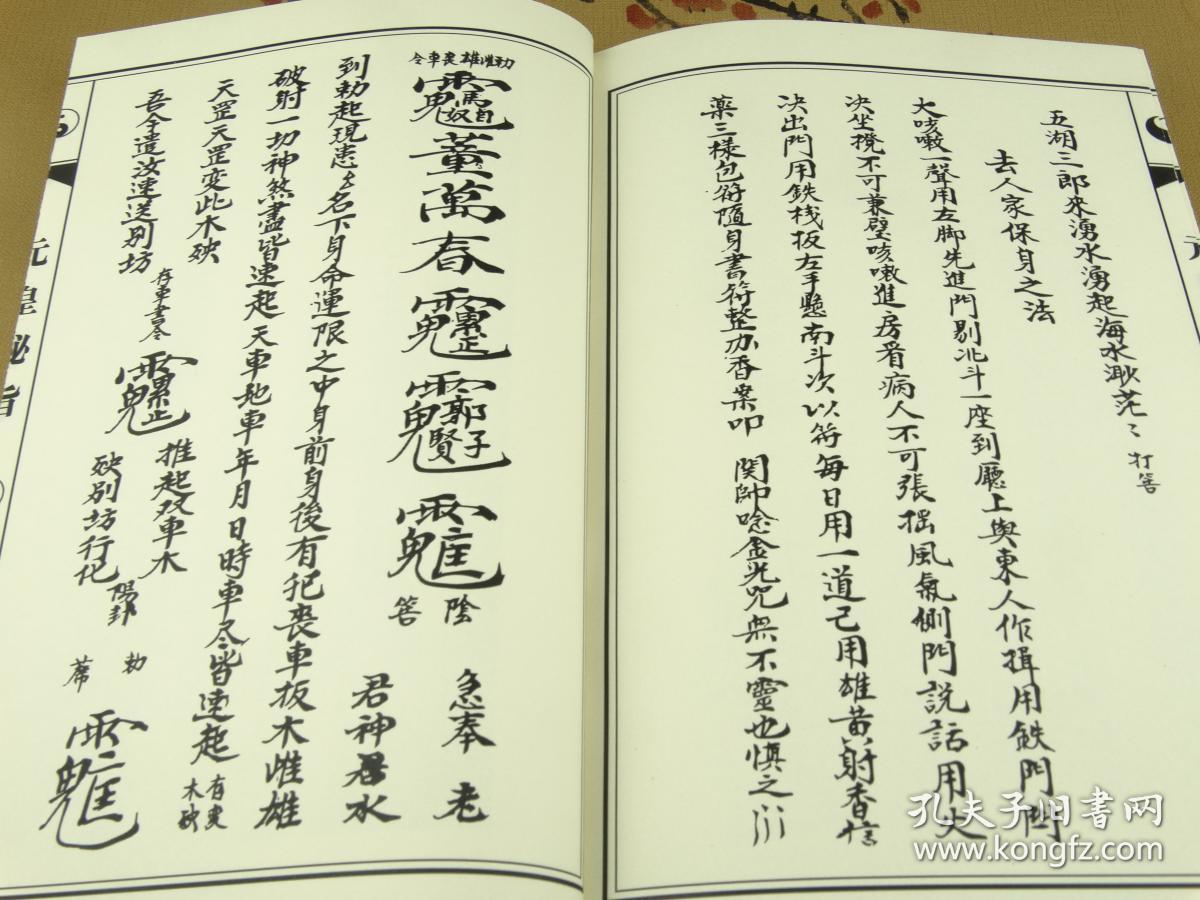 五湖三郎來湧水湧起海水渺茫〻 打筶
去人家保身之法
大咳嗽一聲用左脚先進門剔北斗一座到廳上與東人作揖用鉄門閂
决坐櫈不可兼壁咳嗽進房看病人不可張摇風氣側門説話用火
决出門用鉄栈板左手懸南斗次以符每日用一道己用雄黄射香信
薬三様包符随身書符整办香案叩 関帥唸金光咒無不靈也慎之
勅雌雄喪車令
董萬春
陰筶
急奉老
君神 水
到勅起現患 名下身命運限之中身前身後有犯喪車扳木雌雄
破射一切神煞盡皆速起天車地車年月日時車尽皆速起
天罡天罡变此木殃
吾今遣汝速送别坊
推起双車木
殃别坊行化
陽卦
勅
元皇秘旨
孔夫子旧書网
www.kongfz.com